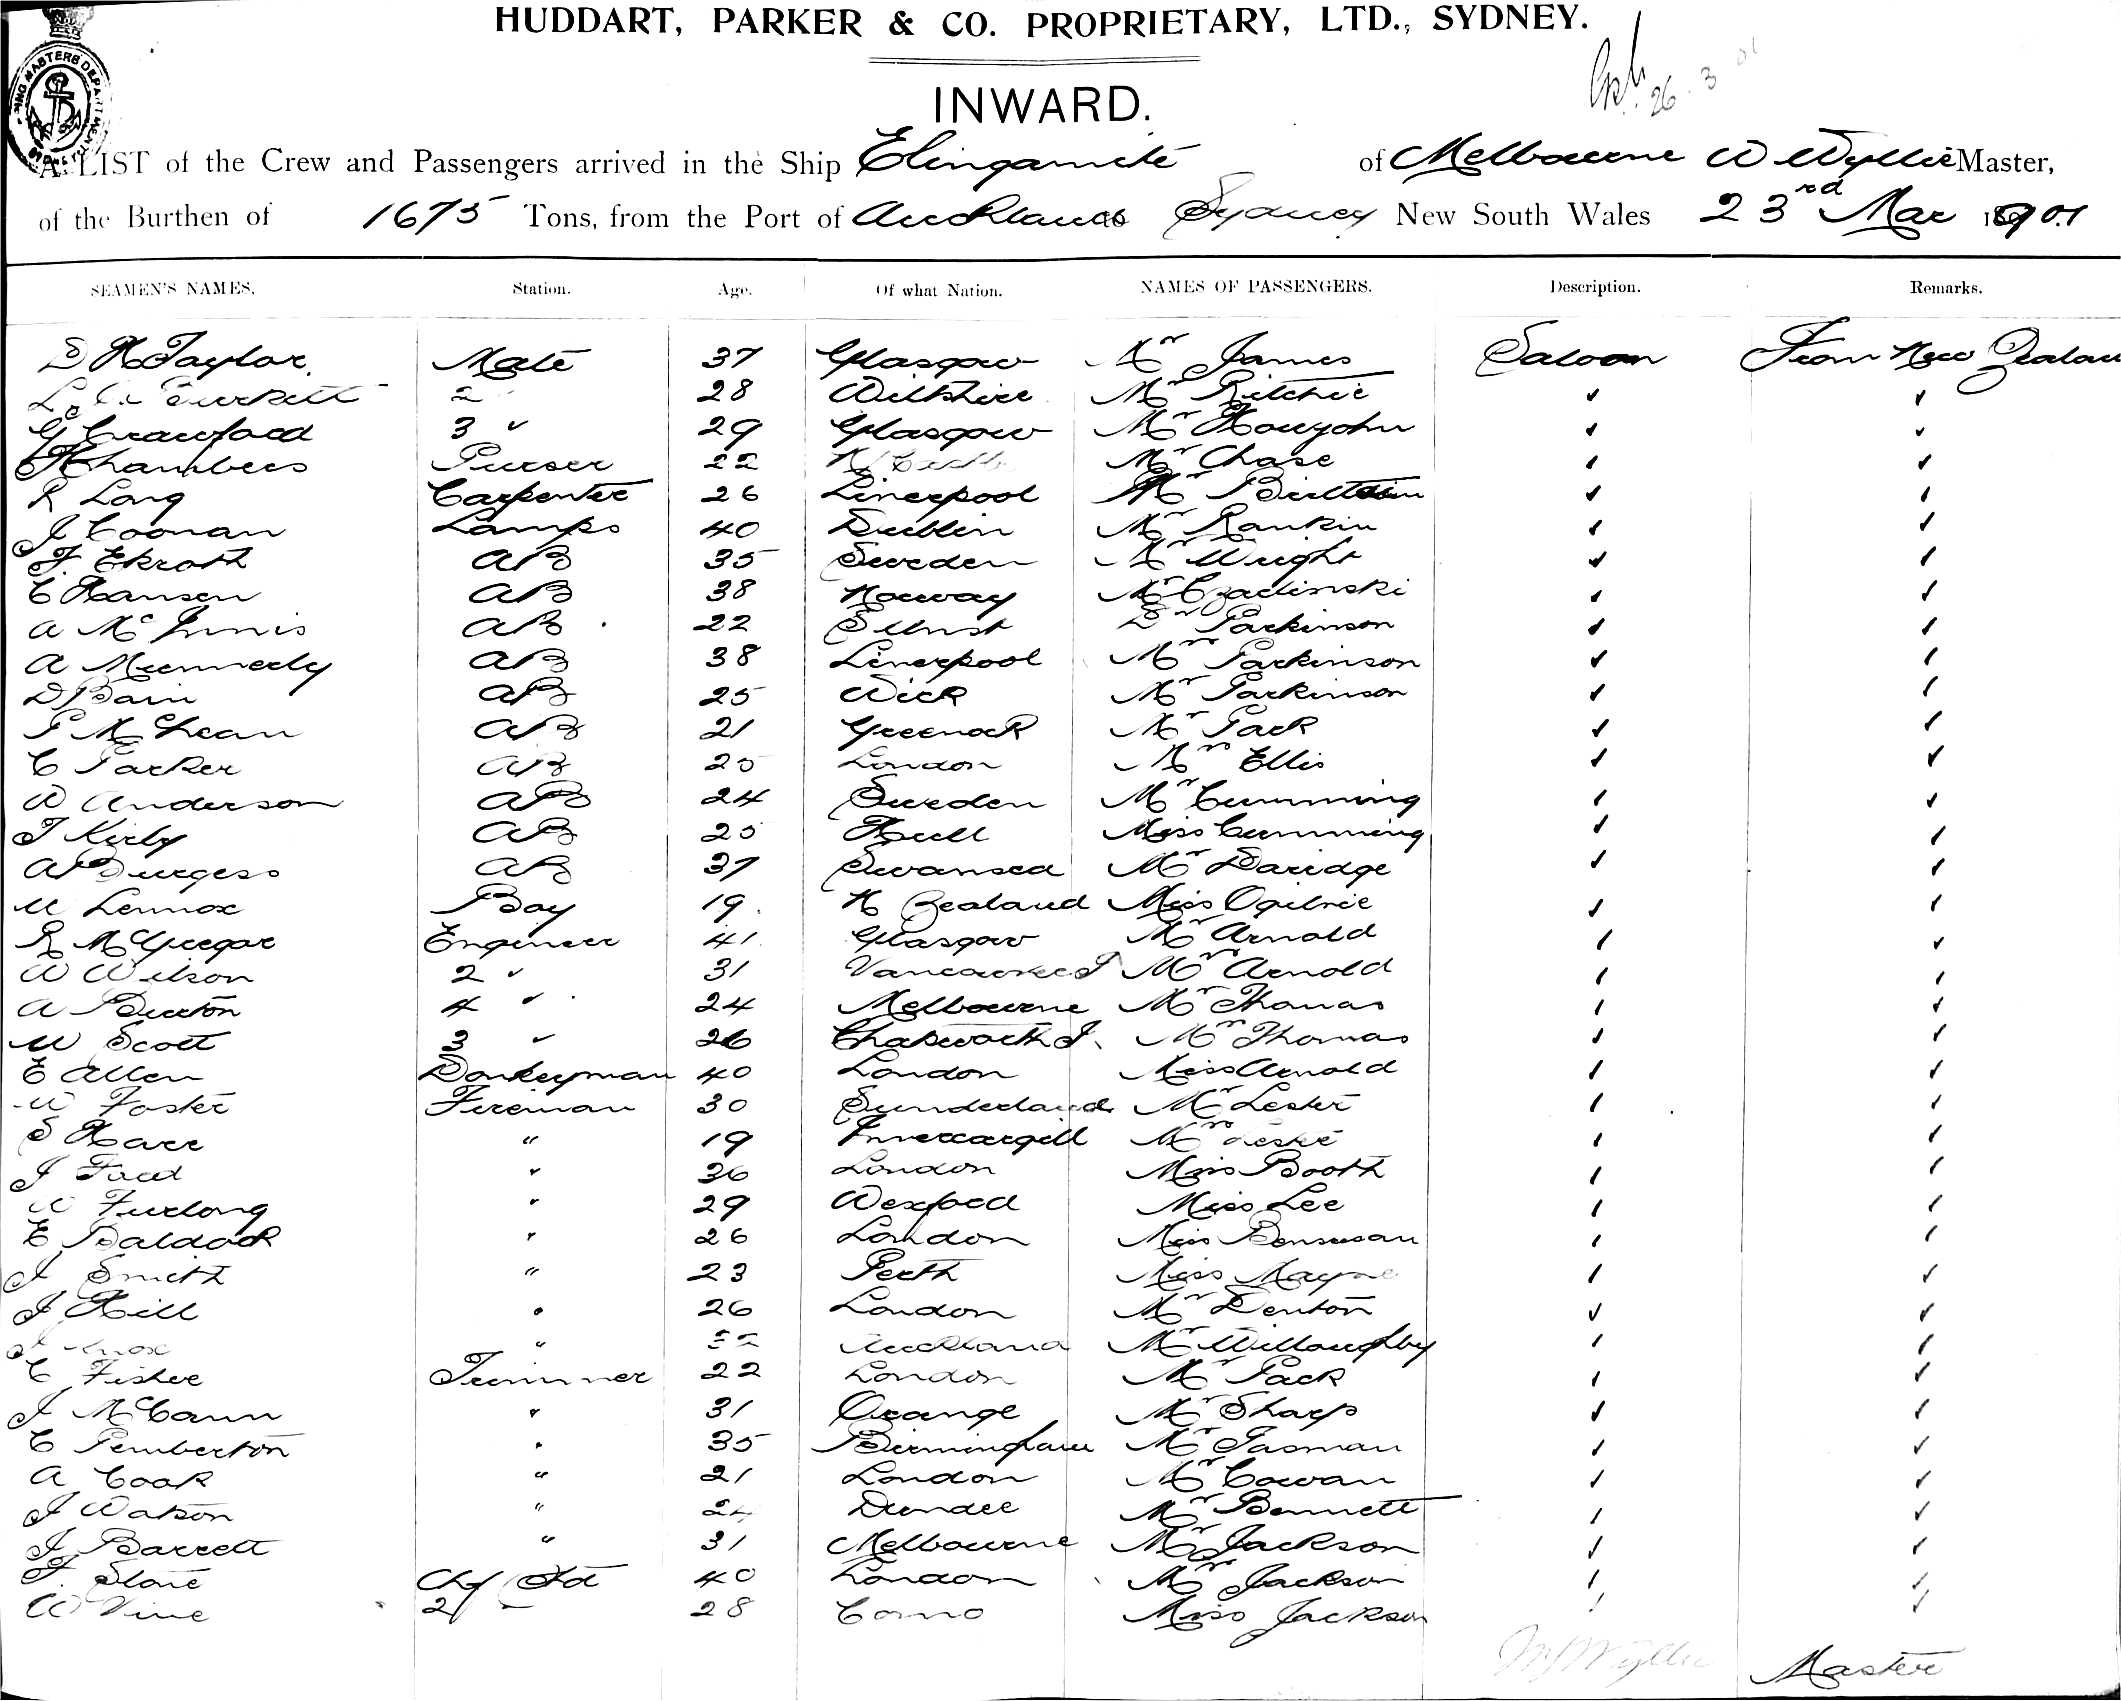 HUDDART, PARKER & CO. PROPRIETARY, LTD., SYDNEY.
26.3.01
INWARD.
A LIST of the Crew and Passengers arrived in the Ship Elingamite of Melbourne W Wyllie Master,
of the Burthen of 1675 Tons, from the Port of Auckland Sydney New South Wales 23rd Mar 1901
SEAMEN'S NAMES. Station. Age. Of what Nation. NAMES OF PASSENGERS. Description. Remarks.
D H Taylor. Mate 37 Glasgow Mr James Saloon From New Zealan
Burkett 2 28 Wiltshire Mr Ritchie ✓ ✓
G Crawford 3 " 29 Glasgow Mr Houyohn ✓ ✓
Chambers Purser 22 Mr Chase ✓ ✓
R Long Carpenter 26 Liverpool Mr ✓ ✓
J Coonan Lamps 40 Dublin Mr Rankin ✓ ✓
F. Ekroth AB 35 Sweden Mr Wright ✓ ✓
C Hansen AB 38 Norway Mr Czadinski ✓ ✓
A McInnis AB 22 S Uist Dr Parkinson ✓ ✓
A Munnerly AB 38 Liverpool Mrs Parkinson ✓ ✓
D Bain AB 25 Wick Mr Parkinson ✓ ✓
P McLean AB 21 Greenock Mr Pack ✓ ✓
C Parker AB 25 London Mrs Ellis ✓ ✓
W Anderson AB 24 Sweden Mr Cumming ✓ ✓
T Kirby AB 25 Hull Miss Cumming ✓ ✓
A Burgess AB 37 Swansea Mr Davidge ✓ ✓
W Lennox Boy 19 N Zealand Miss Ogilvie ✓ ✓
R McGregor Engineer 41 Glasgow Mr Arnold ✓ ✓
W Wilson 2 " 31 Vancouver I Mrs Arnold ✓ ✓
A Burton 4 " 24 Melbourne Mr Thomas ✓ ✓
W Scott 3 " 26 Chatsworth I. Mrs Thomas ✓ ✓
E Allen Donkeyman 40 London Miss Arnold ✓ ✓
W Foster Fireman 30 Sunderland Mr Lester ✓ ✓
S Harr " 19 Invercargill Mrs Lester ✓ ✓
J Ford " 36 London Miss Booth ✓ ✓
W Furlong " 29 Wexford Miss Lee ✓ ✓
E Baldock " 26 London Miss Bensusan ✓ ✓
J Smith " 23 Perth Miss Mayne ✓ ✓
J Hill " 26 London Mr Denton ✓ ✓
J Knox " Auckland Mr Willoughby ✓ ✓
C Fisher Trimmer 22 London Mr Pack ✓ ✓
J McCann " 31 Orange Mr Sharp ✓ ✓
C Pemberton " 35 Birmingham Mr Tasman ✓ ✓
A Cook " 21 London Mr Cowan ✓ ✓
J Watson " 24 Dundee Mr Bennett ✓ ✓
J Barrett " 31 Melbourne Mr Jackson ✓ ✓
F. Stone Chf Std 40 London Mrs Jackson ✓ ✓
W Vine 2 " 28 Como Miss Jackson ✓ ✓
W Wyllie Master